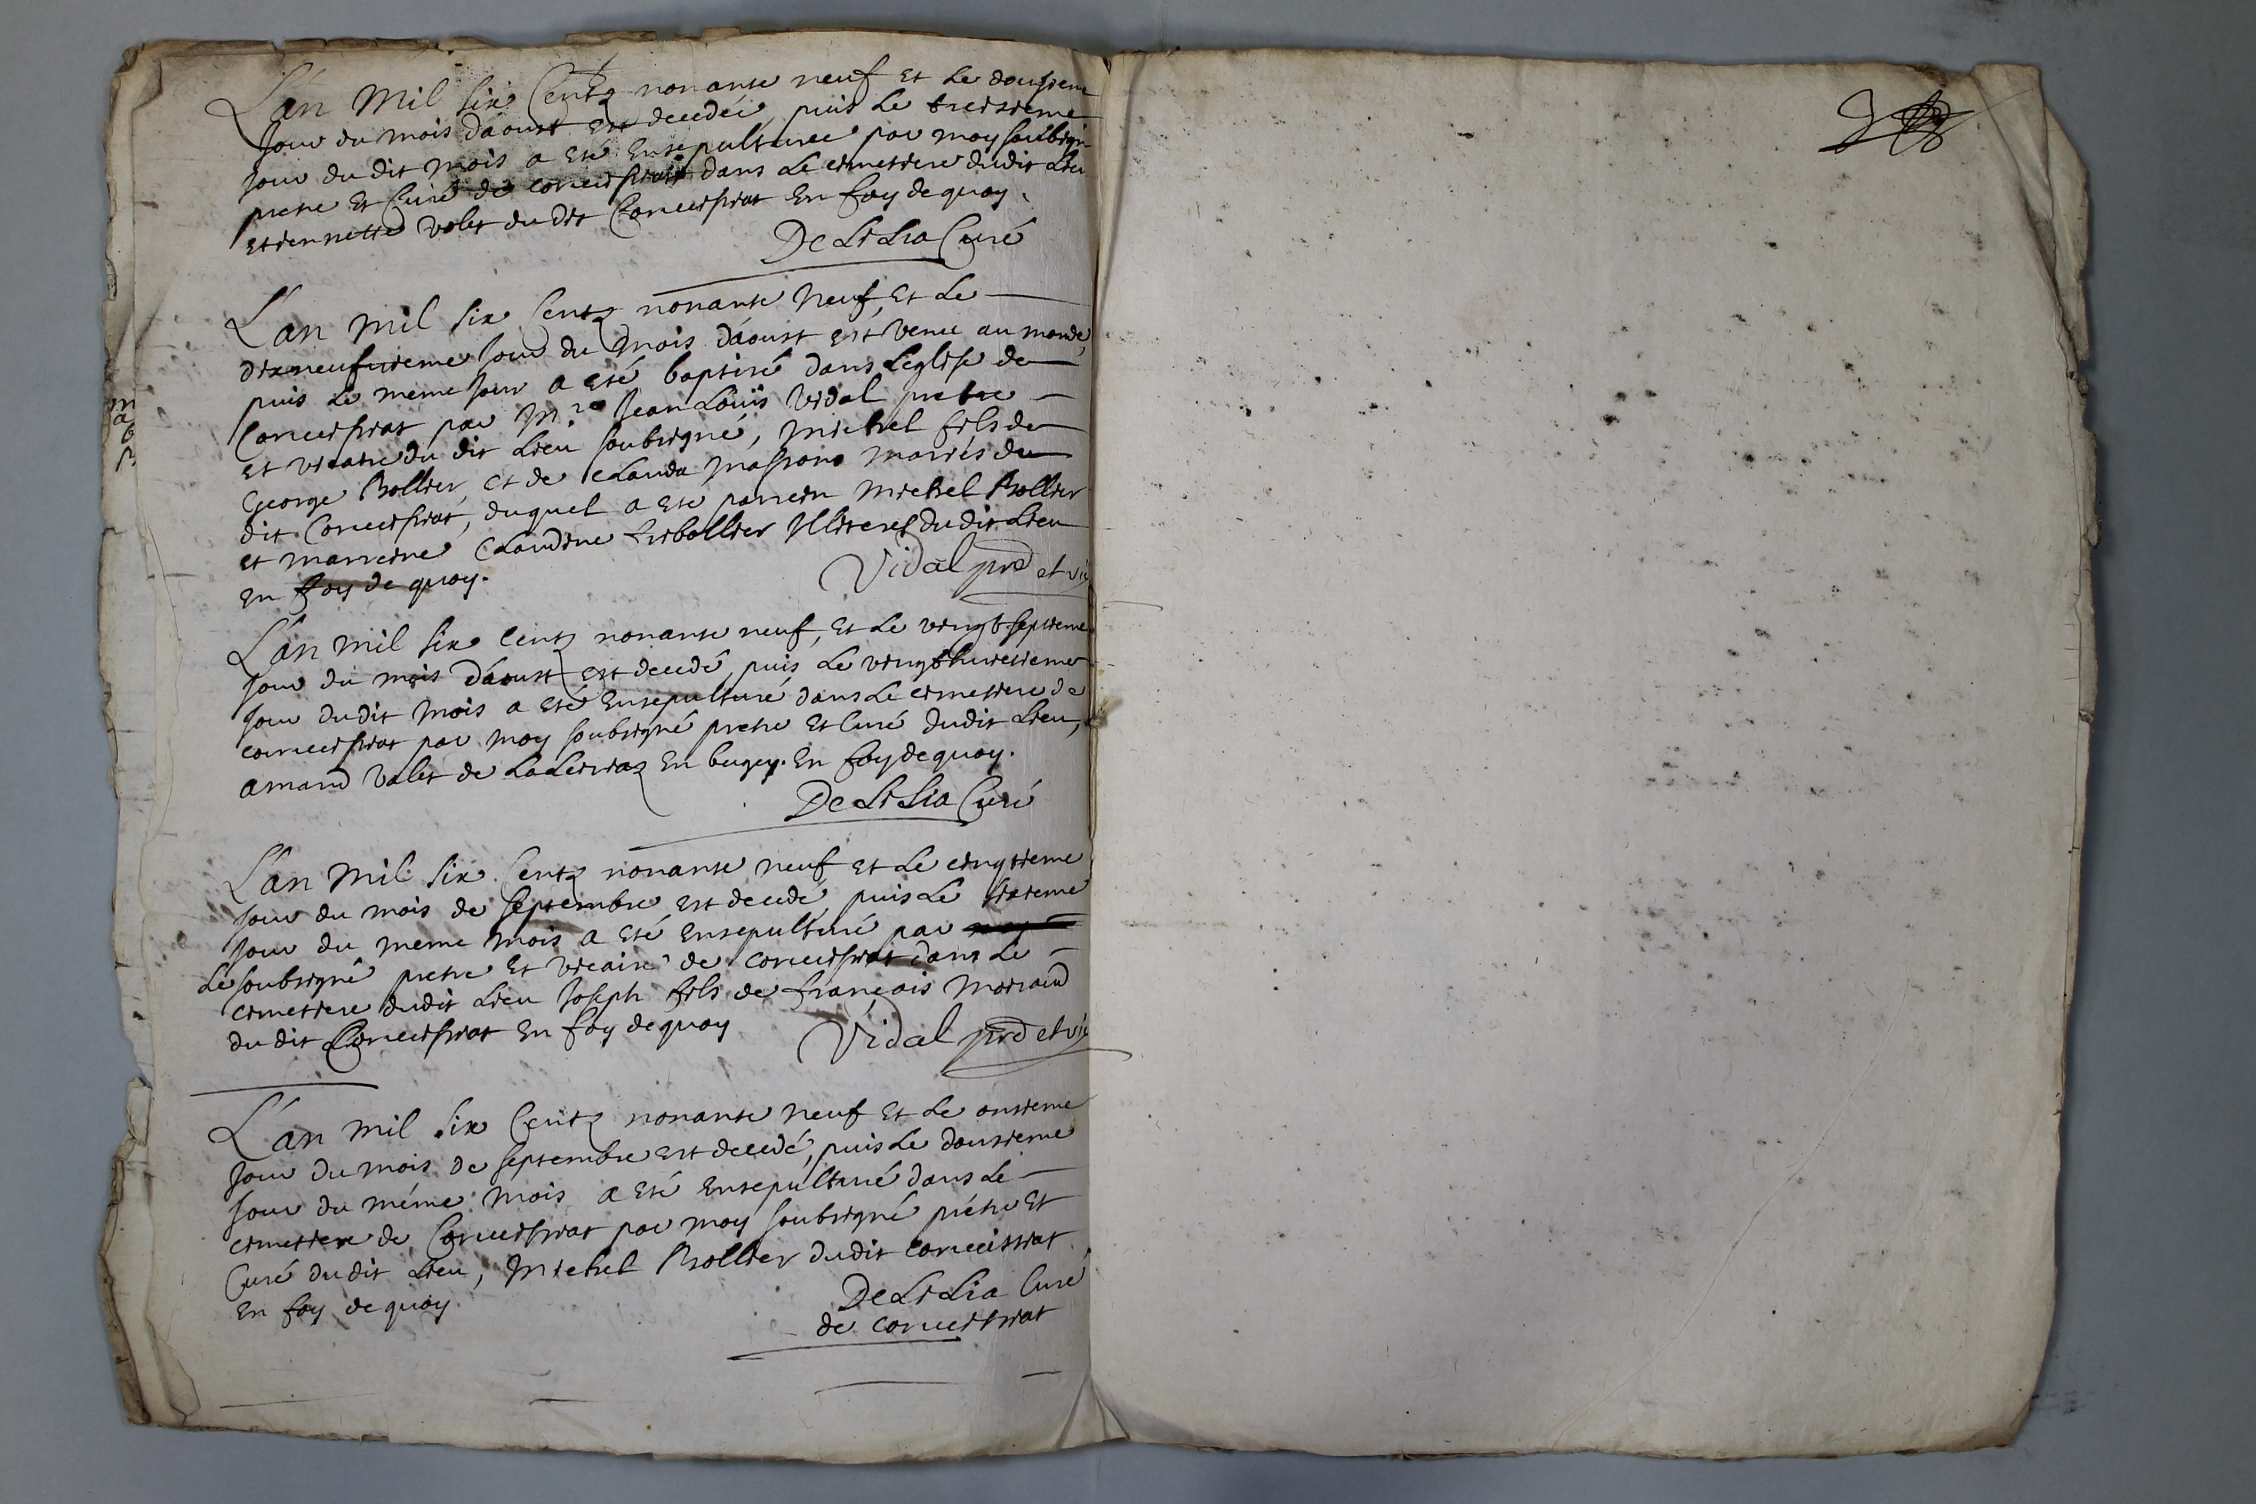 L'an mil six Centz nonante neuf et Le dousieme
Jour du mois d'aoust est decedée, puis Le treisieme
Jour du dit mois a eté ensepulturee par moy soubsigné
pretre et Curé de corveissiat dans Le cimettiere dudit Lieu
etiennette valet du dit Corveissiat En foy de quoy.
De LiLia Curé
L'an mil six Centz nonante neuf, et Le
dixneufvieme Jour du mois d'aoust est venu au monde,
puis Le meme Jour a eté baptisé dans L'eglise de
Corveissiat par Mre Jean Loüis Vidal pretre
et vicaire du dit Lieu soubsigné, michel fils de
George Bollier, et de Clauda massono mariés du
dit Corveissiat, duquel a eté parrein michel Bollier
et marreine Claudine Bollier Illiteres du dit Lieu
en foy de quoy.
Vidal pre et vic
L'an mil six Centz nonante neuf, et Le vingt septieme
Jour du mois d'aoust est decedé, puis Le vingthuictieme
Jour dudit mois a eté Ensepulturé dans Le cimettiere de
corveissiat par moy soubsigné pretre et Curé dudit Lieu,
amand valet de En bugey. En foy de quoy.
De LiLia Curé
L'an mil six Centz nonante neuf et Le cinqtieme
Jour du mois de septembre est decedé, puis Le sixieme
Jour du meme mois a eté ensepulturé par
Le soubsigné pretre et vicaire de corveissiat dans Le
cimettiere dudit Lieu Joseph fils de françois moiraud
du dit Corveissiat En foy de quoy
Vidal pre et vic
L'an mil six Centz nonante neuf et Le onsieme
Jour du mois de septembre est decedé, puis Le dousieme
Jour du méme mois a eté ensepulturé dans Le
cimettiere de Corveissiat par moy soubsigné prétre et
Curé du dit Lieu, michel Bollier dudit corveissiat
En foy de quoy
De LiLia Curé
de corveissiat